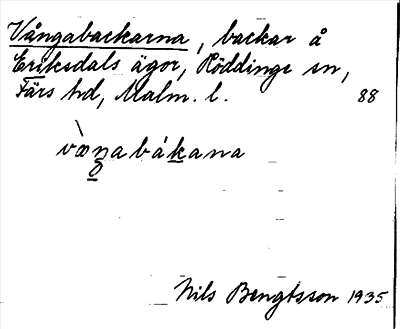 Vångabackarna, backar å
Eriksdals ägor, Röddinge sn,
Färs hd, Malm. l. 88
væ̀n̥abákana
Nils Bengtsson 1935